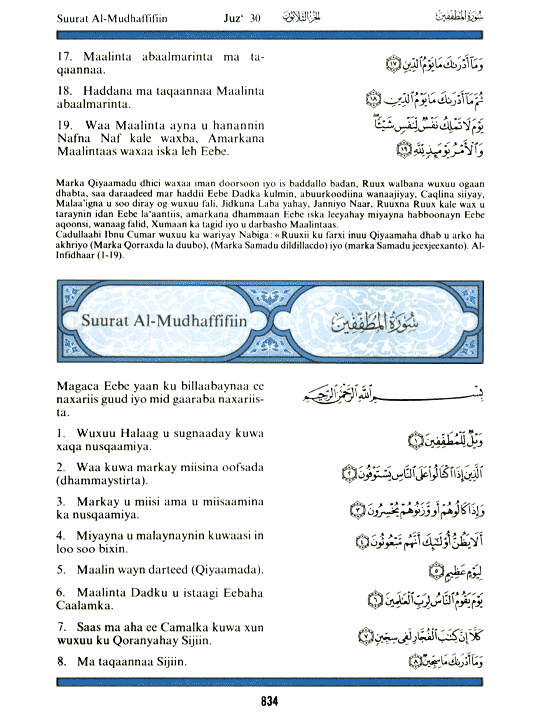 Suurat Al-Mudhaffifiin Juz' 30 الجزء الثلاثون سورة المطففين
17. Maalinta abaalmarinta ma ta-
qaannaa.
وَمَآ أَدْرَىٰكَ مَا يَوْمُ ٱلدِّينِ ١٧
18. Haddana ma taqaannaa Maalinta
abaalmarinta.
ثُمَّ مَآ أَدْرَىٰكَ مَا يَوْمُ ٱلدِّينِ ١٨
19. Waa Maalinta ayna u hanannin
Nafna Naf kale waxba, Amarkana
Maalintaas waxaa iska leh Eebe.
يَوْمَ لَا تَمْلِكُ نَفْسٌ لِّنَفْسٍ شَيْـًٔا
وَٱلْأَمْرُ يَوْمَئِذٍ لِّلَّهِ ١٩
Marka Qiyaamadu dhici waxaa iman doorsoon iyo is baddallo badan, Ruux walbana wuxuu ogaan
dhabta, saa daraadeed mar haddii Eebe Dadka kulmin, abuurkoodiina wanaajiyay, Caqlina siiyay,
Malaa'igna u soo diray og wuxuu fali, Jidkuna Laba yahay, Janniyo Naar, Ruuxna Ruux kale wax u
taraynin idan Eebe la'aantiis, amarkana dhammaan Eebe iska leeyahay miyayna habboonayn Eebe
aqoonsi, wanaag falid, Xumaan ka tagid iyo u darbasho Maalintaas.
Cadullaahi Ibnu Cumar wuxuu ka wariyay Nabiga: «Ruuxii ku farxi inuu Qiyaamaha dhab u arko ha
akhriyo (Marka Qorraxda la duubo), (Marka Samadu dildillacdo) iyo (marka Samadu jeexjeexanto). Al-
Infidhaar (1-19).
Suurat Al-Mudhaffifiin سُورَةُ الْمُطَفِّفِينَ
Magaca Eebe yaan ku billaabaynaa ee
naxariis guud iyo mid gaaraba naxariis-
ta.
بِسْمِ ٱللَّهِ ٱلرَّحْمَٰنِ ٱلرَّحِيمِ
1. Wuxuu Halaag u sugnaaday kuwa
xaqa nusqaamiya.
وَيْلٌ لِّلْمُطَفِّفِينَ ١
2. Waa kuwa markay miisina oofsada
(dhammaystirta).
ٱلَّذِينَ إِذَا ٱكْتَالُوا۟ عَلَى ٱلنَّاسِ يَسْتَوْفُونَ ٢
3. Markay u miisi ama u miisaamina
ka nusqaamiya.
وَإِذَا كَالُوهُمْ أَو وَّزَنُوهُمْ يُخْسِرُونَ ٣
4. Miyayna u malaynaynin kuwaasi in
loo soo bixin.
أَلَا يَظُنُّ أُو۟لَـٰٓئِكَ أَنَّهُم مَّبْعُوثُونَ ٤
5. Maalin wayn darteed (Qiyaamada).
لِيَوْمٍ عَظِيمٍ ٥
6. Maalinta Dadku u istaagi Eebaha
Caalamka.
يَوْمَ يَقُومُ ٱلنَّاسُ لِرَبِّ ٱلْعَـٰلَمِينَ ٦
7. Saas ma aha ee Camalka kuwa xun
wuxuu ku Qoranyahay Sijiin.
كَلَّآ إِنَّ كِتَـٰبَ ٱلْفُجَّارِ لَفِى سِجِّينٍ ٧
8. Ma taqaannaa Sijiin.
وَمَآ أَدْرَىٰكَ مَا سِجِّينٌ ٨
834